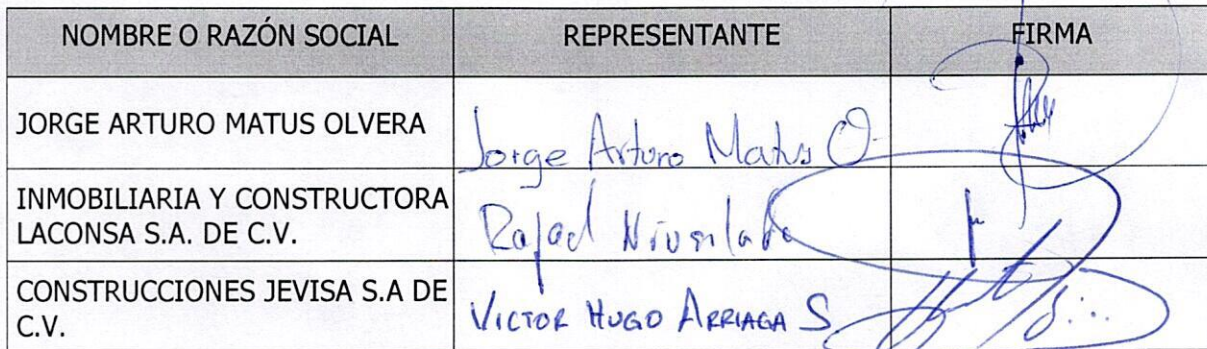 NOMBRE O RAZÓN SOCIAL REPRESENTANTE FIRMA
JORGE ARTURO MATUS OLVERA Jorge Arturo Matus O.
INMOBILIARIA Y CONSTRUCTORA
LACONSA S.A. DE C.V. Rafael
CONSTRUCCIONES JEVISA S.A DE
C.V. VICTOR HUGO ARRIAGA S.